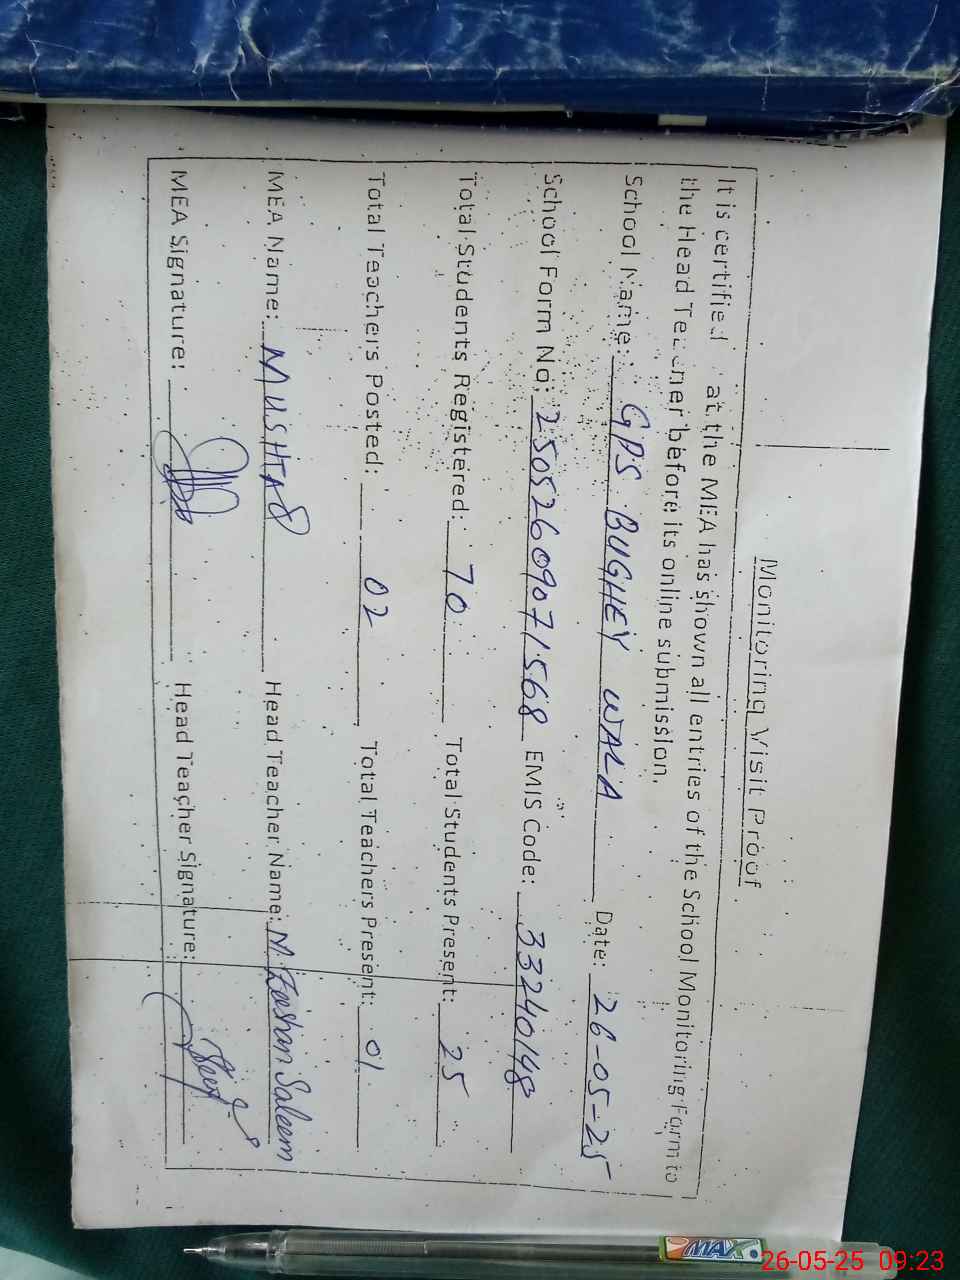 Monitoring Visit Proof
It is certified at the MEA has shown all entries of the School Monitoring Form to
the Head Teacher before its online submission.
School Name: GPS BUGHEY WALA Date: 26-05-25
School Form No: 25052609071568 EMIS Code: 33240148
Total Students Registered: 70 Total Students Present: 25
Total Teachers Posted: 02 Total Teachers Present: 01
MEA Name: MUSHTAQ Head Teacher Name: M. Zeeshan Saleem
MEA Signature: Head Teacher Signature:
MAX
26-05-25 09:23